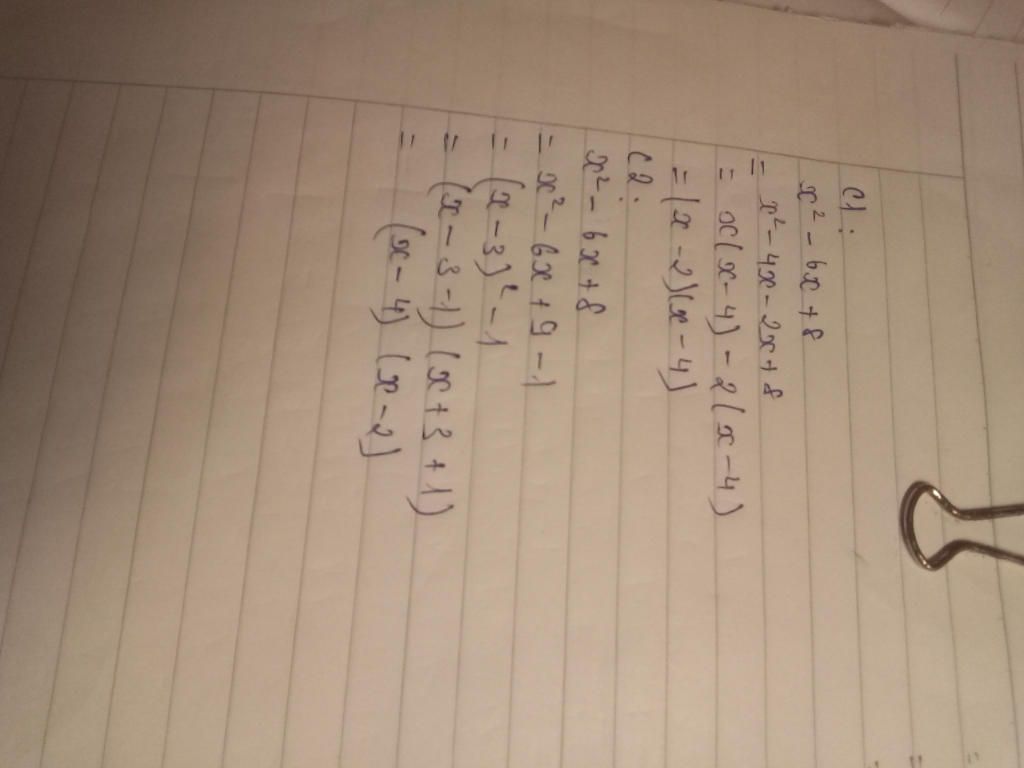 C1:
x² - 6x + 8
= x² - 4x - 2x + 8
= x(x - 4) - 2(x - 4)
= (x - 2)(x - 4)
C2:
x² - 6x + 8
= x² - 6x + 9 - 1
= (x - 3)² - 1
= (x - 3 - 1) (x + 3 + 1)
= (x - 4) (x - 2)